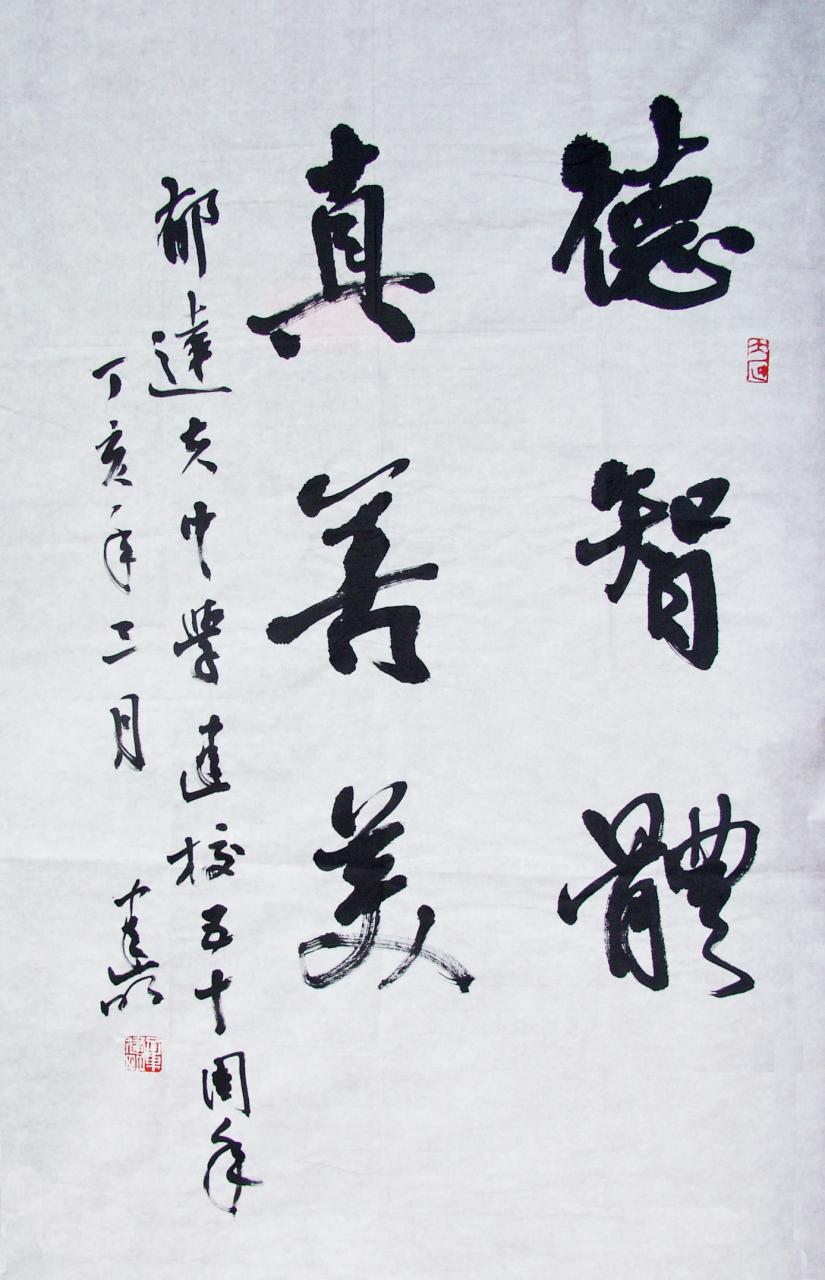 德智體
真善美
郁達夫中學建校五十周年
丁亥年二月